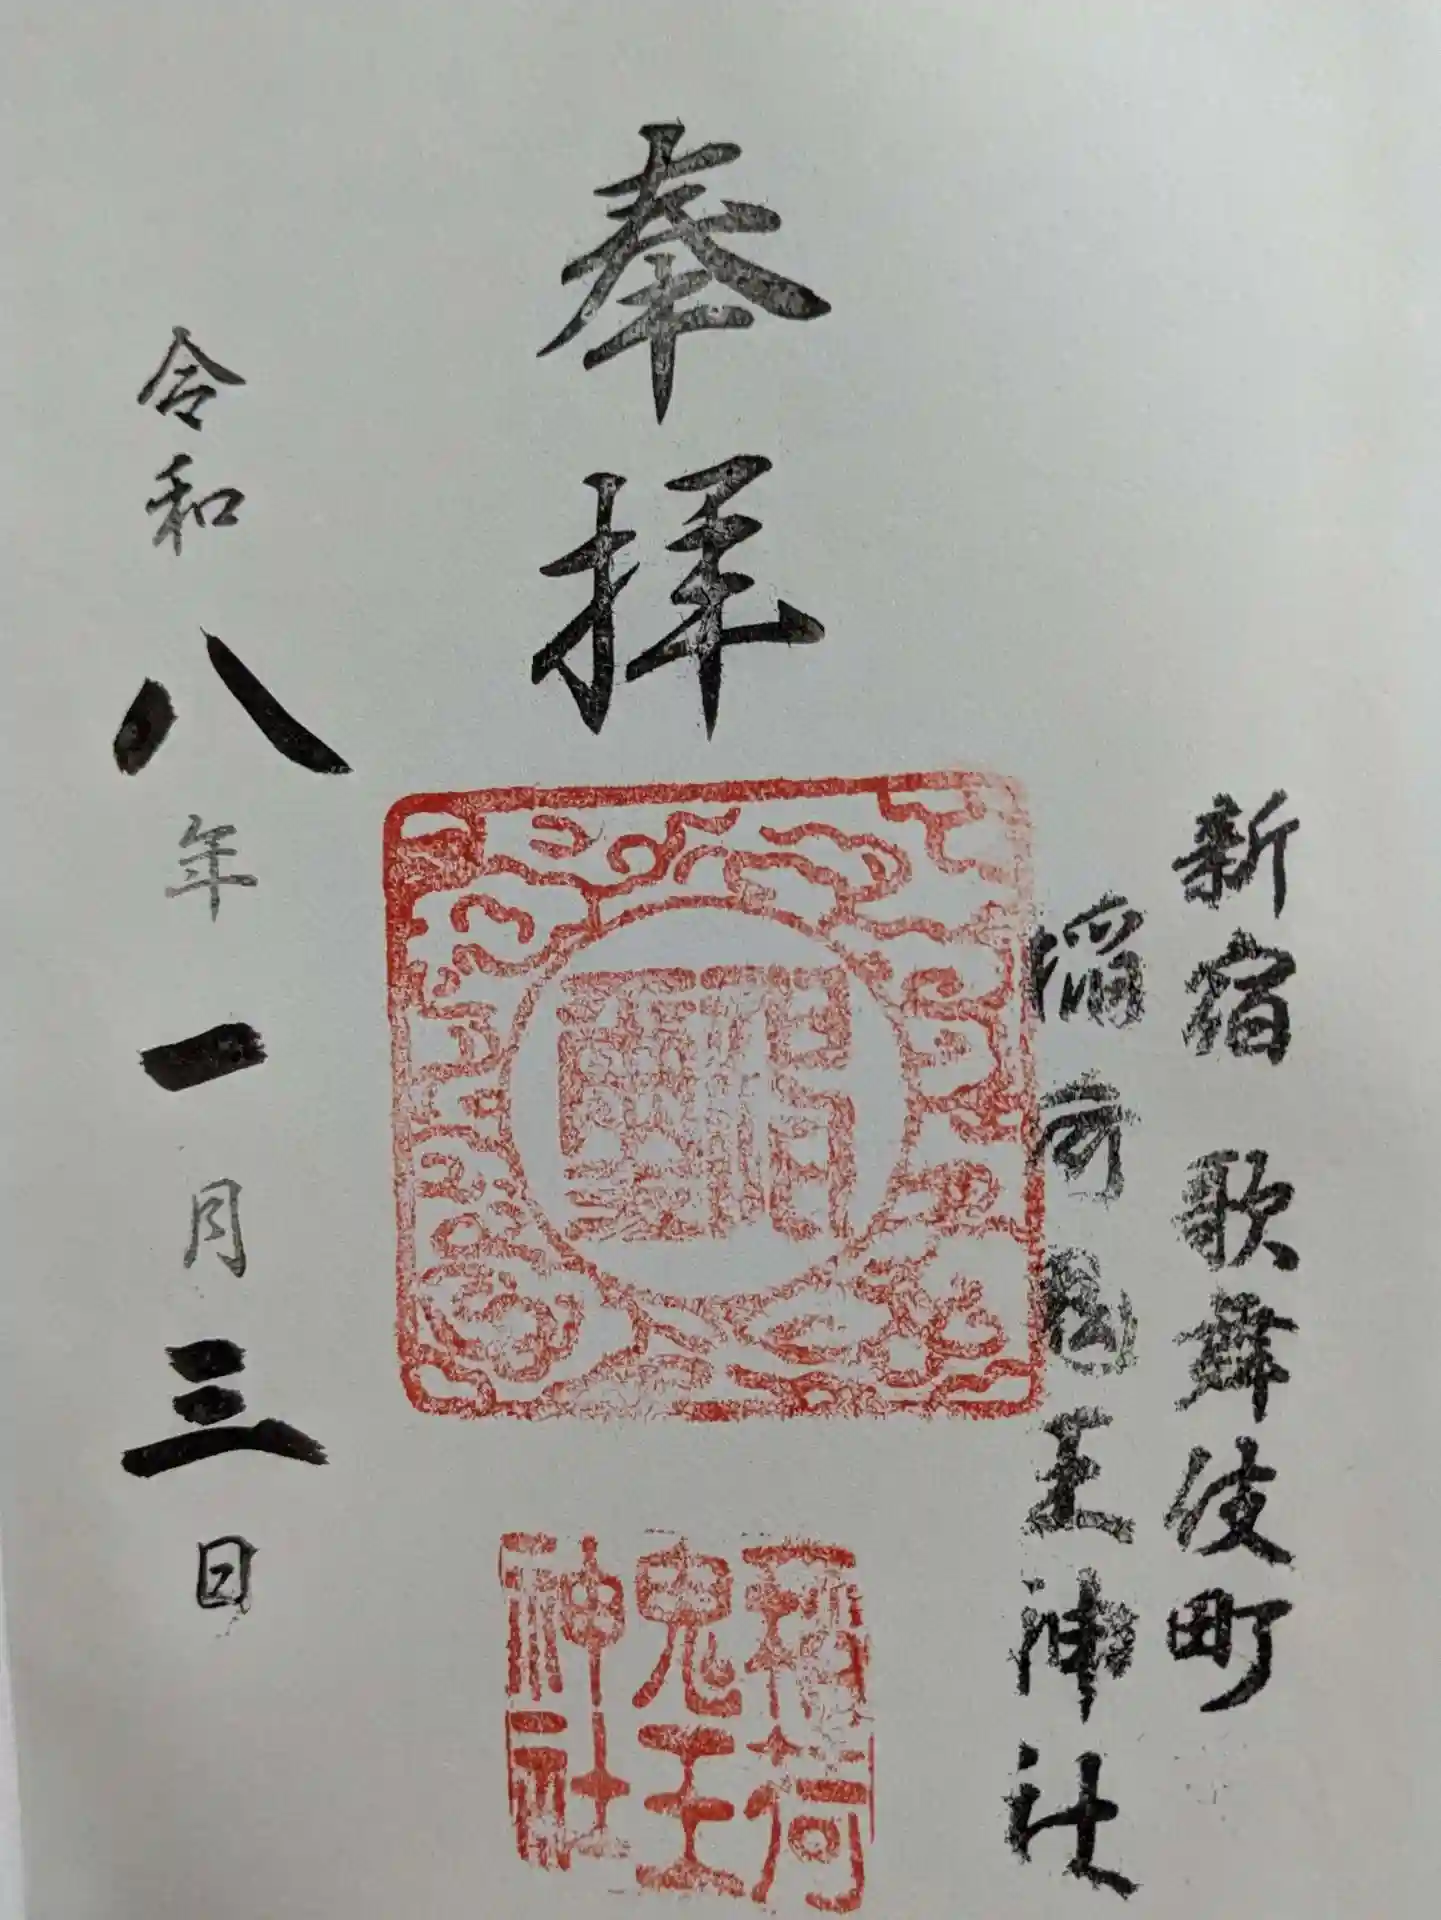 新宿 歌舞伎町
稲荷鬼王神社
奉拝
稲荷
鬼王
神社
令和八年一月三日